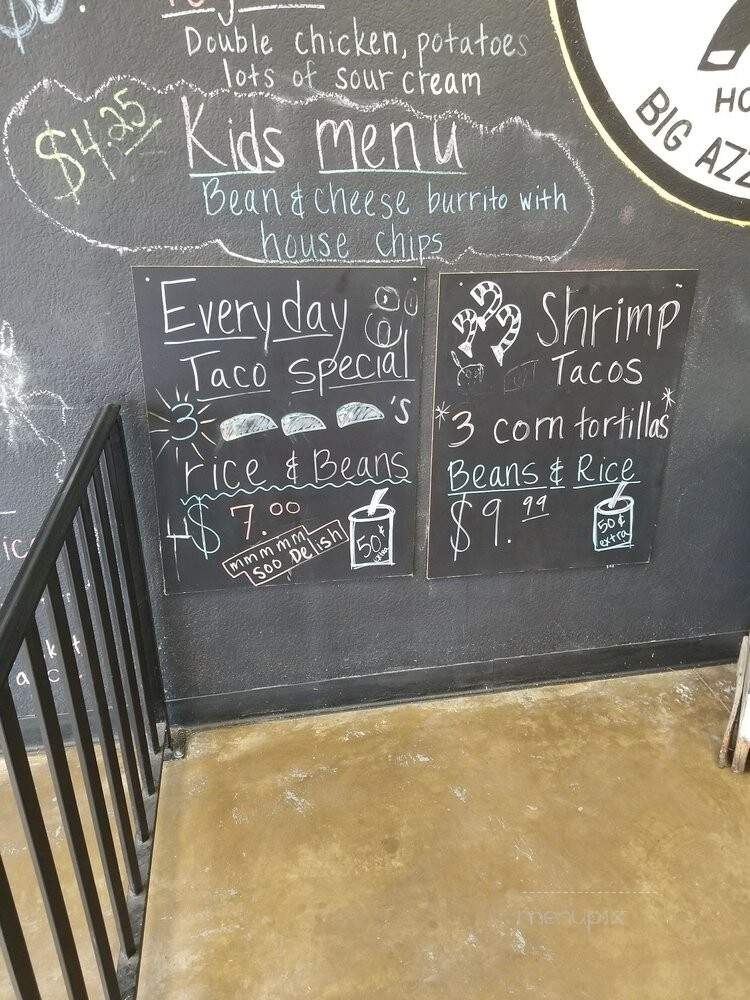 Double chicken, potatoes
lots of sour cream
$4.25
Kids menu
Bean & cheese burrito with
house chips
HO
BIG AZZ
Everyday
Taco special
3 's
rice & Beans
$7.00
mmmmm
Soo Delish
50¢
extra
Shrimp
Tacos
*3 corn tortillas*
Beans & Rice
$9.99
50¢
extra
menupix